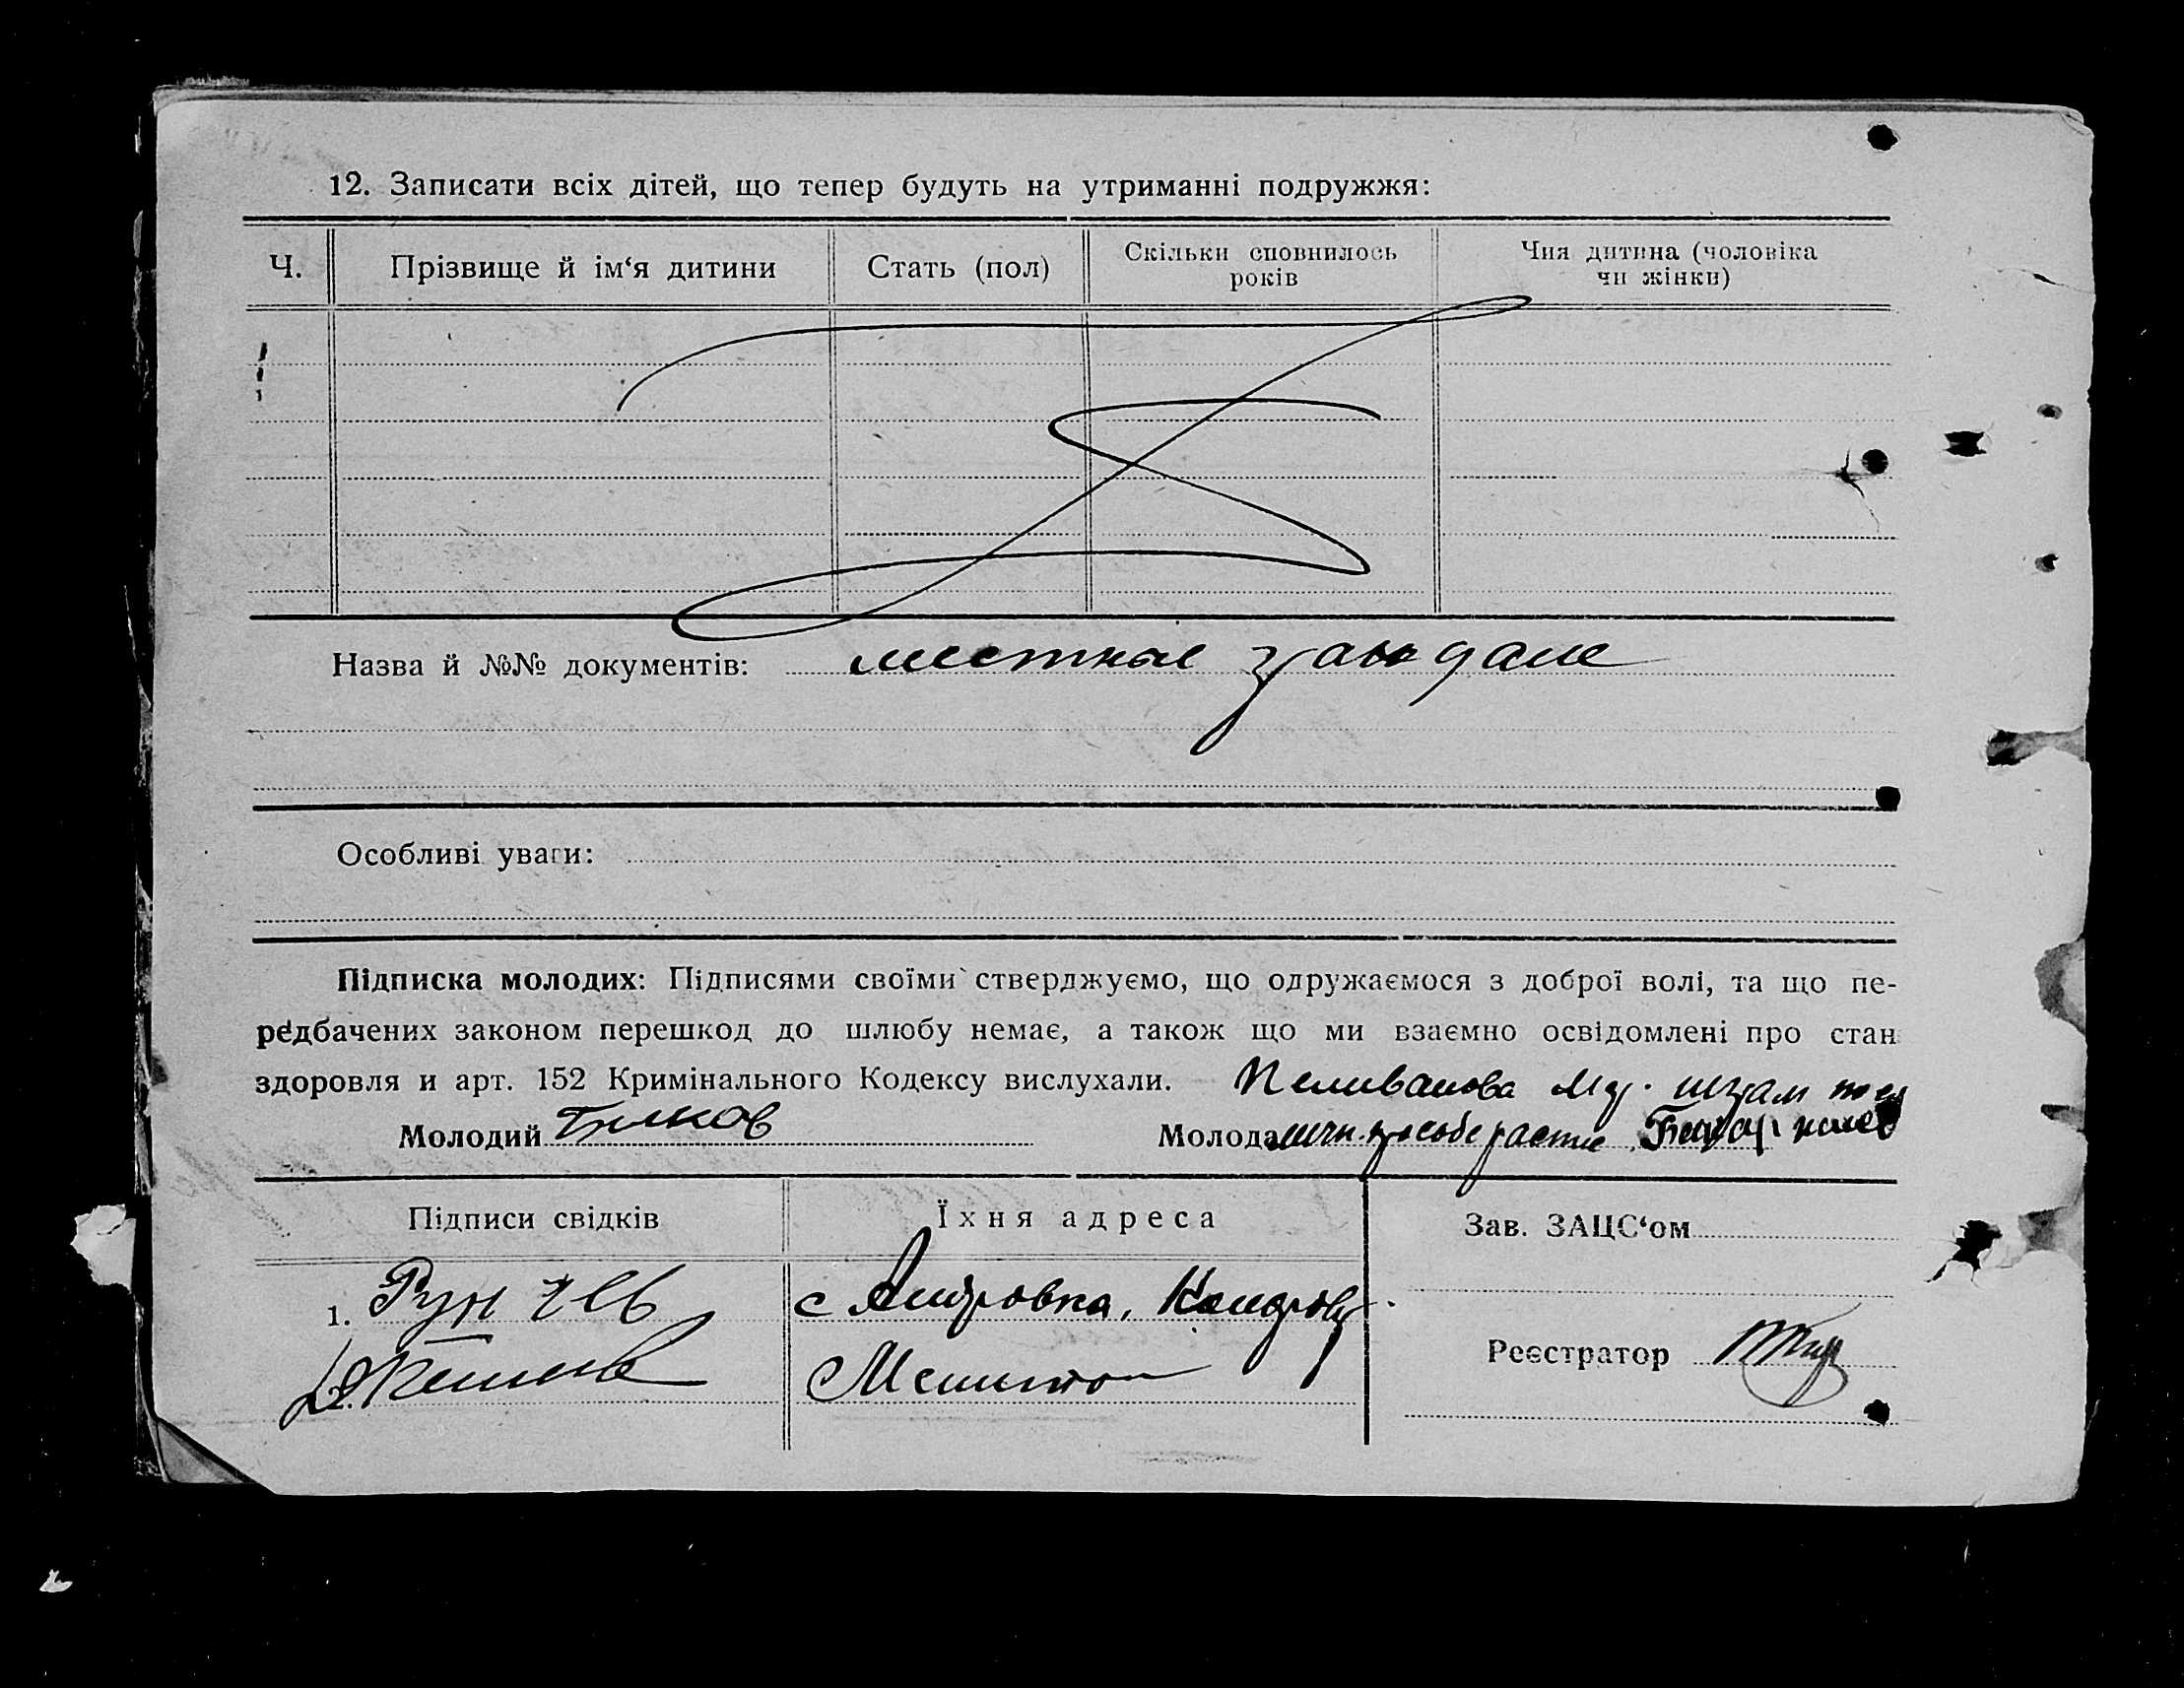 12. Записати всіх дітей, що тепер будуть на утриманні подружжя:
Ч. Прізвище й ім‘я дитини Стать (пол) Скільки сповнилось років Чия дитина (чоловіка чи жінки)
Назва й №№ документів: местные граждане
Особливі уваги:
Підписка молодих: Підписями своїми стверджуємо, що одружаємося з доброї волі, та що пе-
редбачених законом перешкод до шлюбу немає, а також що ми взаємно освідомлені про стан
здоровля и арт. 152 Кримінального Кодексу вислухали. Пеливанова
Молодий Молода
Підписи свідків Їхня адреса Зав. ЗАЦС‘ом
1. с
Реєстратор
2.